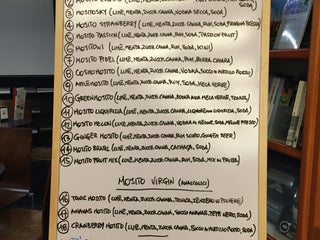 MOJITOSKY (LIME, MENTA, ZUCC. CANNA, VODKA SECCA, SODA)
SODA)
④ MOJITO STRAWBERRY (LIME, MENTA, ZUCC. CANNA, RUM, SODA,
⑤ MOJITO PASSION (LIME, MENTA, ZUCC. CANNA, RUM, SODA, PASSION FRUIT)
⑥ MOJITOWI (LIME, MENTA, ZUCC. CANNA, RUM, SODA, KIWI)
⑦ MOJITO FIDEL (LIME, MENTA, ZUCC. CANNA, RUM, BIRRA CHIARA)
⑧ COSMOMOJITO (LIME, MENTA, ZUCC. CANNA, VODKA, SUCCO MIRTILLO ROSSO)
MOJITO (LIME, MENTA, ZUCC. CANNA, RUM, SODA, MELA VERDE)
⑩ GREENMOJITO (LIME, MENTA, ZUCC. CANNA, VODKA ALLA MELA VERDE, TONICA)
⑪ MOJITO LIQUIRIZIA (LIME, MENTA, ZUCC. CANNA, LIQUIRIZIA, SODA)
⑫ MOJITO MELON (LIME, MENTA, ZUCC. CANNA, VODKA MELONE, SODA, MELONE FRESCO)
⑬ GINGER MOJITO (LIME, MENTA, ZUCC. CANNA, RUM SCURO, GINGER BEER)
⑭ MOJITO BRASIL (LIME, MENTA, ZUCC. CANNA, CACHACA, SODA)
⑮ MOJITO FRUIT MIX (LIME, MENTA, ZUCC. CANNA, RUM, SODA, MIX DI FRUTTA)
MOJITO VIRGIN (ANALCOLICI)
⑯ TONIC MOJITO (LIME, MENTA, ZUCC. CANNA, TONICA, ZENZERO
⑰ ANANAS MOJITO (LIME, MENTA, ZUCC. CANNA, SUCCO ANANAS, PEPE NERO, SODA)
⑱ CRANBERRY MOJITO (LIME, MENTA, ZUCC. CANNA, SUCCO MIRTILLO ROSSO, SODA)